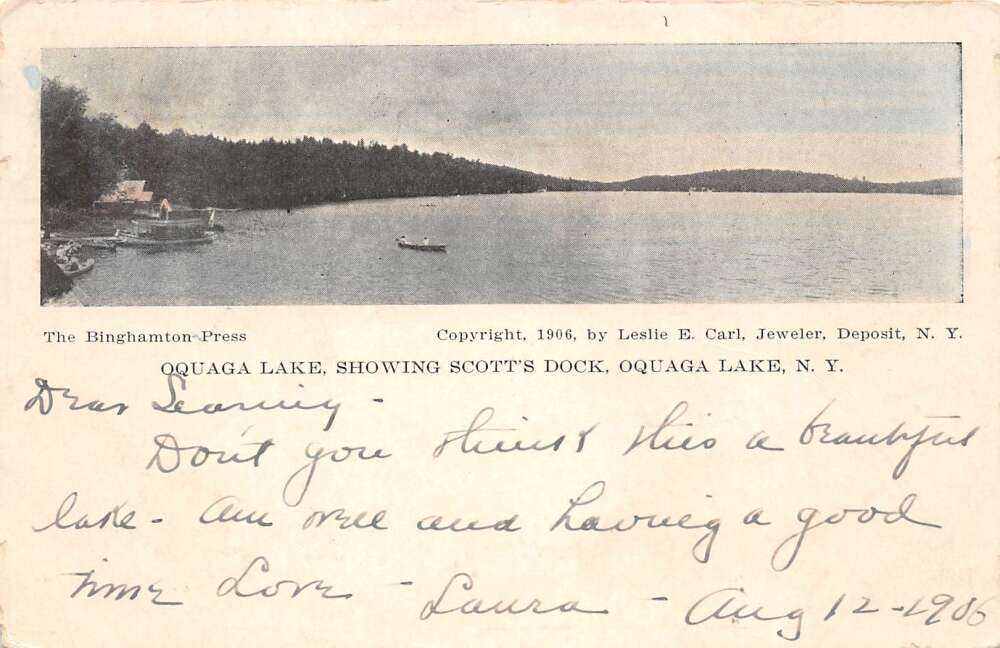 The Binghamton Press
Copyright, 1906, by Leslie E. Carl, Jeweler, Deposit, N. Y.
OQUAGA LAKE, SHOWING SCOTT'S DOCK, OQUAGA LAKE, N. Y.
Dear
Don't you think this a beautiful
lake - Am well and having a good
time Love - Laura - Aug 12 - 1906